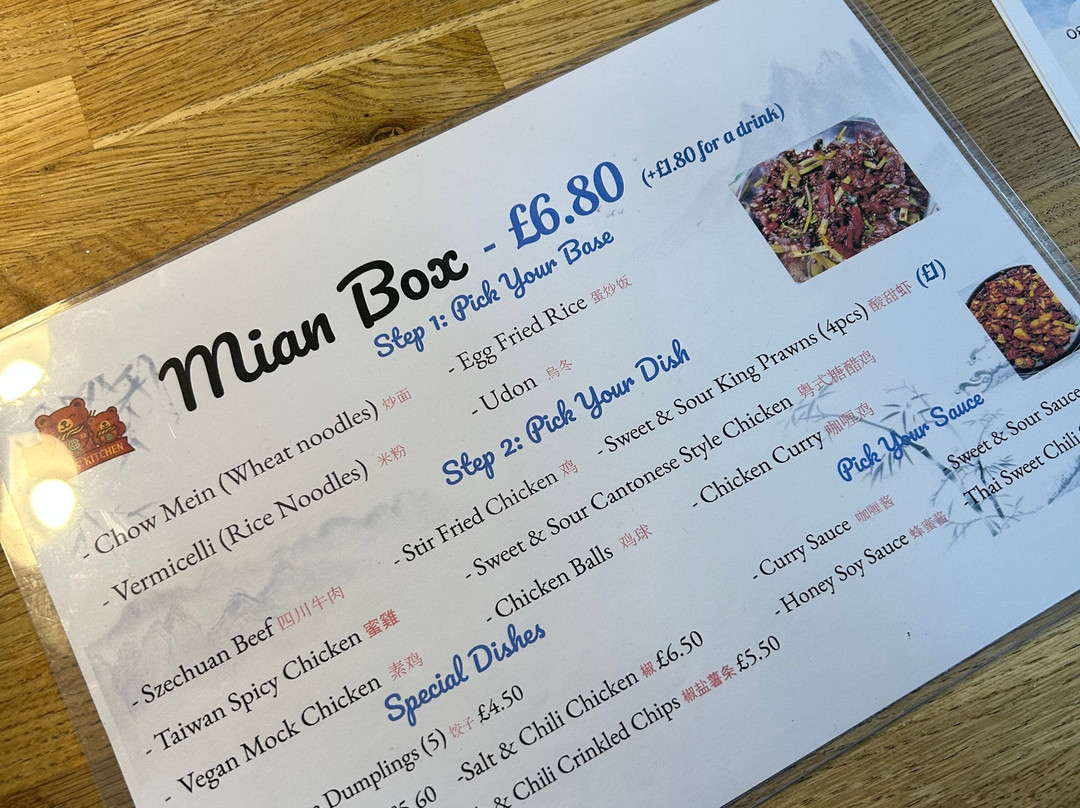 Mian Box - £6.80 (+£1.80 for a drink)
Step 1: Pick Your Base
- Chow Mein (Wheat noodles) 炒面
- Egg Fried Rice 蛋炒饭
- Vermicelli (Rice Noodles) 米粉
- Udon 烏冬
Step 2: Pick Your Dish
- Szechuan Beef 四川牛肉
- Stir Fried Chicken 鸡
- Sweet & Sour King Prawns (4pcs) 酸甜虾 (£1)
- Taiwan Spicy Chicken 蜜雞
- Sweet & Sour Cantonese Style Chicken 粤式糖醋鸡
- Vegan Mock Chicken 素鸡
- Chicken Balls 鸡球
- Chicken Curry 咖喱鸡
Pick Your Sauce
- Curry Sauce 咖喱酱
- Sweet & Sour Sauce
- Honey Soy Sauce 蜂蜜酱
Thai Sweet Chili
Special Dishes
Dumplings (5) 饺子 £4.50
-Salt & Chili Chicken 椒 £6.50
& Chili Crinkled Chips 椒盐薯条 £5.50
KITCHEN